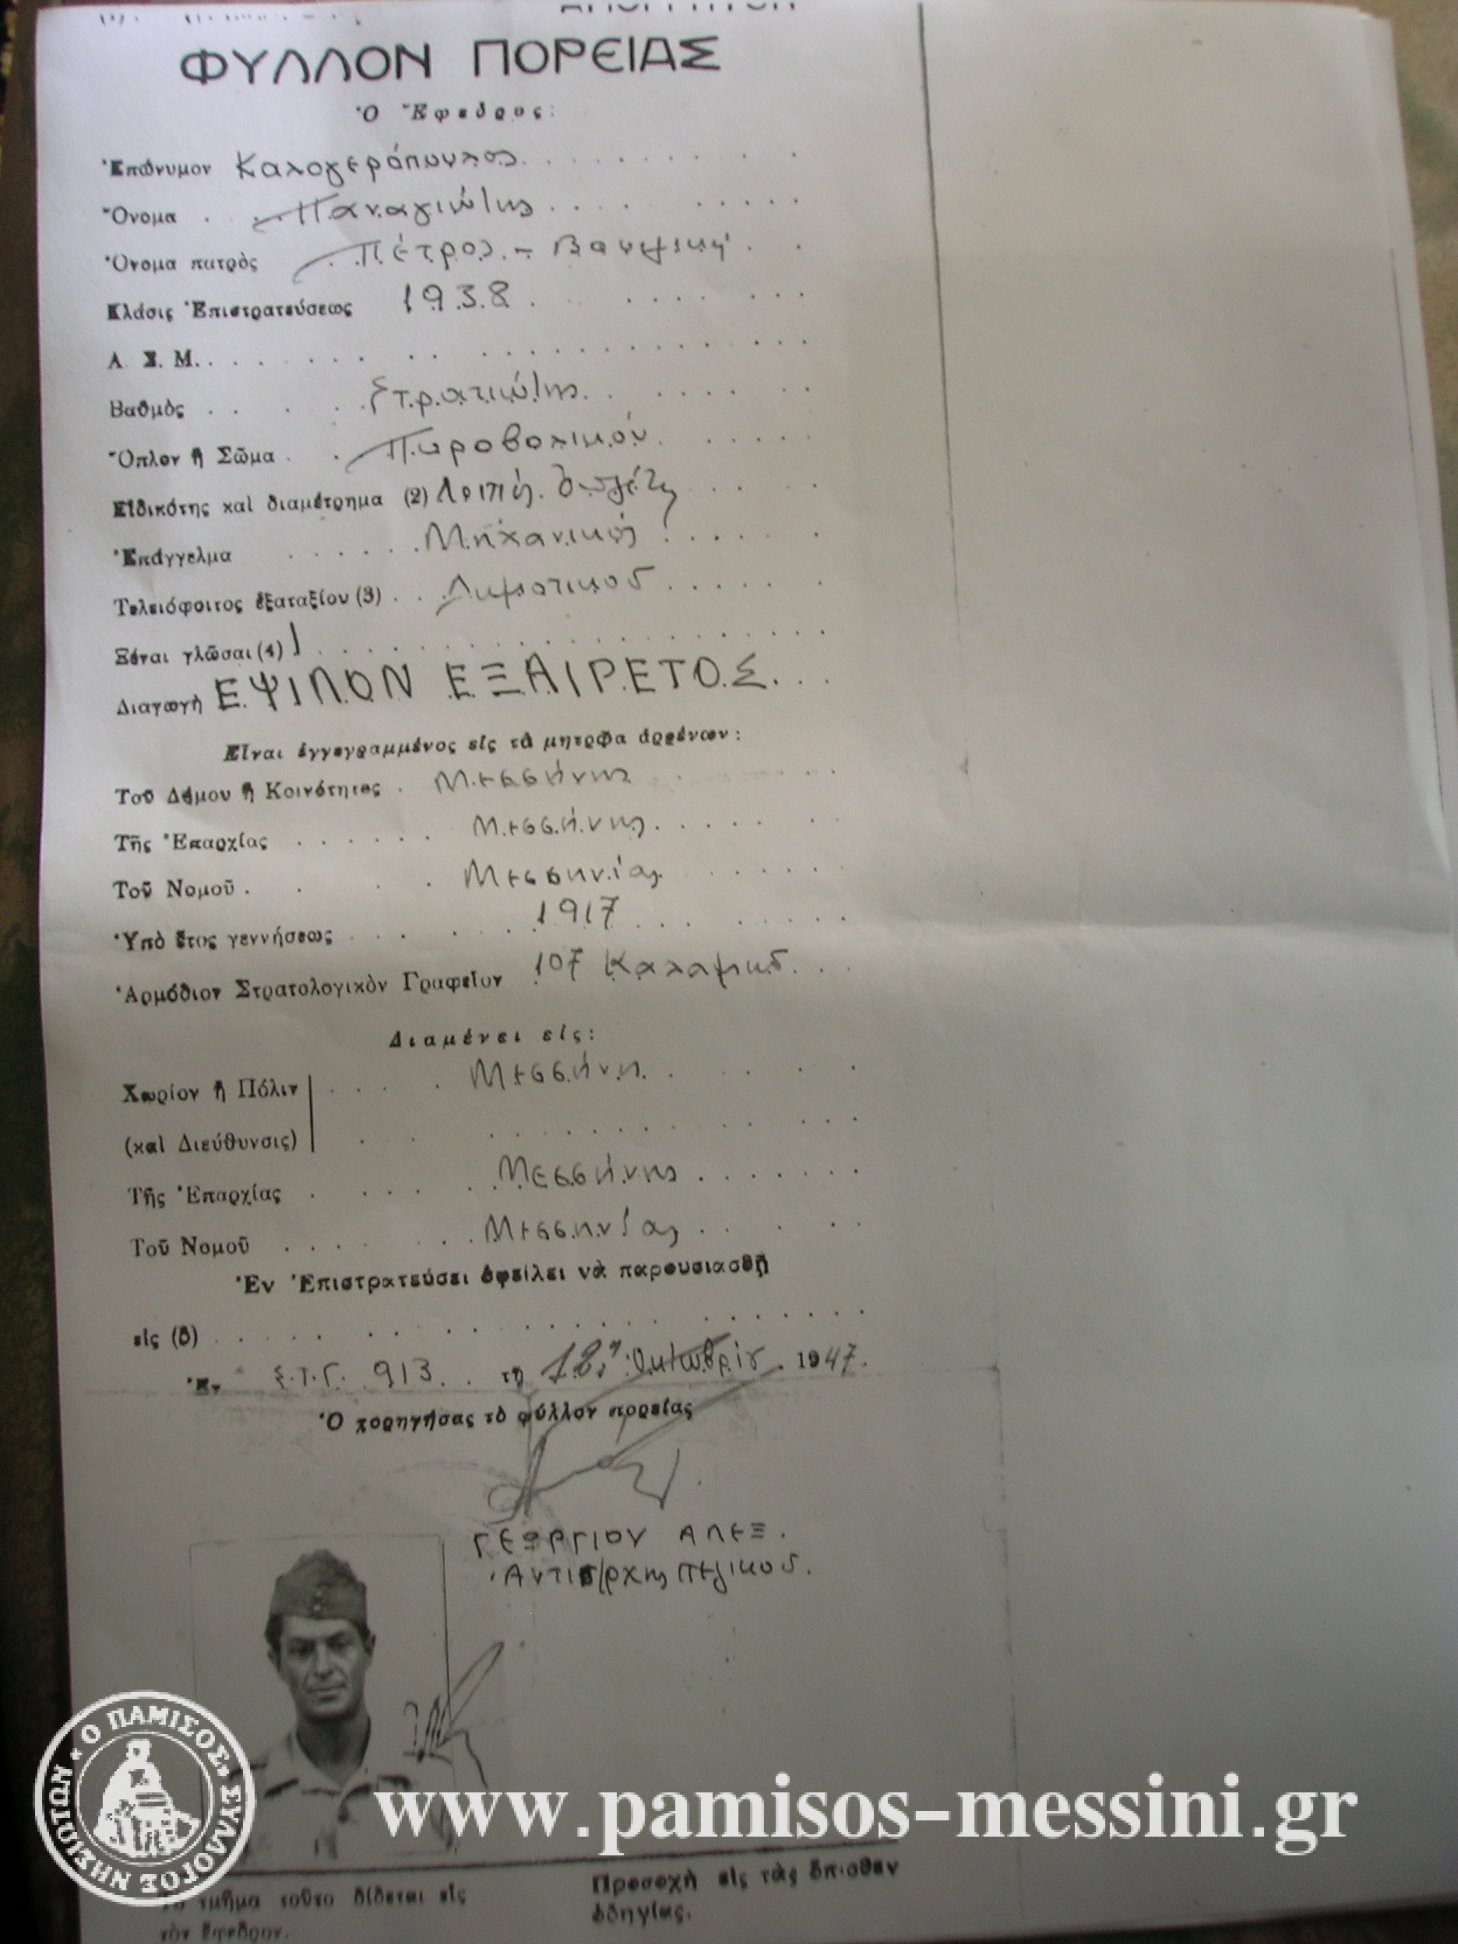 ΦΥΛΛΟΝ ΠΟΡΕΙΑΣ
Ὁ Ἔφεδρος:
Ἐπώνυμον Καλογερόπουλος
Ὄνομα Παναγιώτης
Ὄνομα πατρὸς Πέτρος - Βασιλική
Κλάσις Ἐπιστρατεύσεως 1938
Α. Σ. Μ.
Βαθμὸς Στρατιώτης
Ὅπλον ἢ Σῶμα Πυροβολικόν
Εἰδικότης καὶ διαμέτρημα (2)
Ἐπάγγελμα Μηχανικός
Τελειόφοιτος ἐξαταξίου (3) Δημοτικοῦ
Ξέναι γλῶσαι (4)
Διαγωγὴ ΕΨΙΛΟΝ ΕΞΑΙΡΕΤΟΣ
Εἶναι ἐγγεγραμμένος εἰς τὰ μητρῷα ἀρρένων:
Τοῦ Δήμου ἢ Κοινότητος Μεσσήνης
Τῆς Ἐπαρχίας Μεσσήνης
Τοῦ Νομοῦ Μεσσηνίας
Ὑπὸ ἔτος γεννήσεως 1917
Ἁρμόδιον Στρατολογικὸν Γραφεῖον 107 Καλαμῶν
Διαμένει εἰς:
Χωρίον ἢ Πόλιν Μεσσήνη
(καὶ Διεύθυνσις)
Τῆς Ἐπαρχίας Μεσσήνης
Τοῦ Νομοῦ Μεσσηνίας
Ἐν Ἐπιστρατεύσει ὀφείλει νὰ παρουσιασθῇ
εἰς (5)
Ἐν Σ.Τ.Γ. 913 τῇ 12η Ὀκτωβρίου 1947.
Ὁ χορηγήσας τὸ φύλλον πορείας
ΓΕΩΡΓΙΟΥ ΑΛΕΞ.
Ἀντισ/ρχης Πεζικοῦ.
Ο ΠΑΜΙΣΟΣ ΣΥΛΛΟΓΟΣ ΝΗΣΙΩΤΩΝ
www.pamisos-messini.gr
τμῆμα τοῦτο δίδεται εἰς
τὸν ἔφεδρον.
Προσοχὴ εἰς τὰς ὄπισθεν
ὁδηγίας.